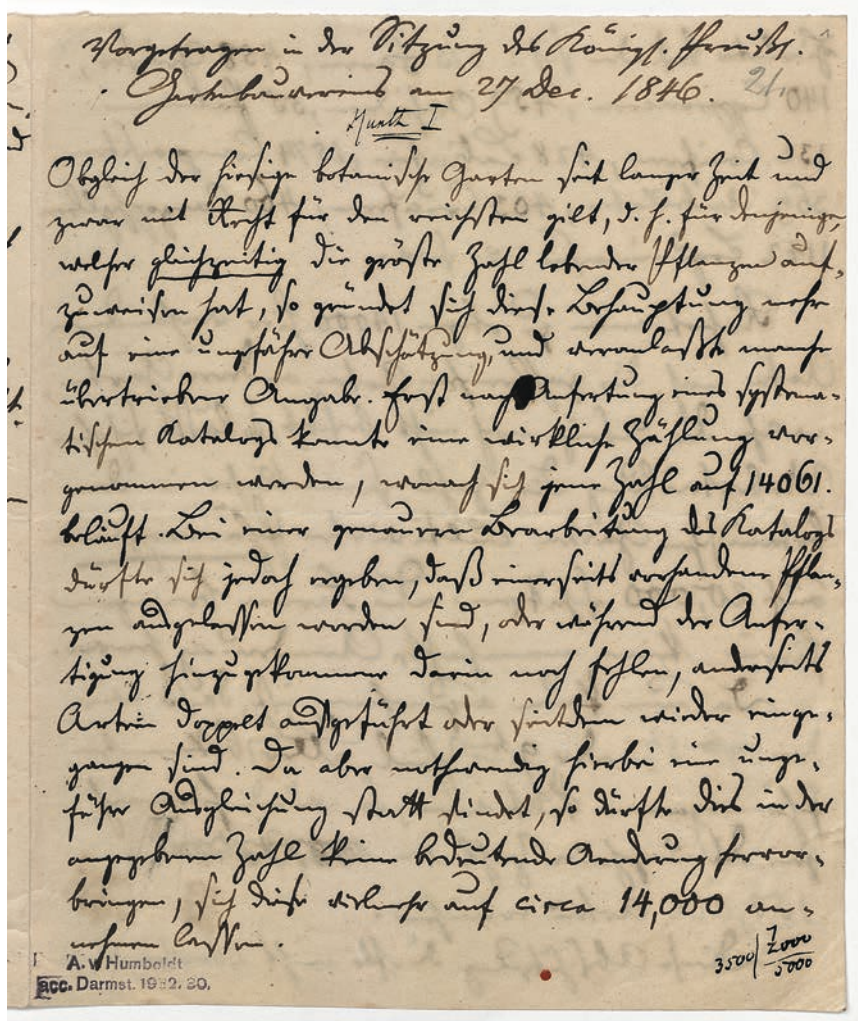 Vorgetragen in der Sitzung des Königl. Preußs.
Gartenbauvereins am 27 Dec. 1846. 21.
Kunth I
Obgleich der hiesige botanische Garten seit langer Zeit und
zwar mit Recht für den reichsten gilt, d. h. für denjenigen,
welcher gleichzeitig die größte Zahl lebender Pflanzen auf-
zuweisen hat, so gründet sich diese Behauptung mehr
auf eine ungefähre Abschätzung, und veranlaßte manche
übertriebene Angabe. Erst nach Anfertung eines systema-
tischen Katalogs konnte eine wirkliche Zählung vor-
genommen werden, wonach sich jene Zahl auf 14061.
beläuft. Bei einer genauern Bearbeitung des Katalogs
dürfte sich jedoch ergeben, daß einerseits vorhandene Pflan-
zen ausgelassen worden sind, oder während der Anfer-
tigung hinzugekommene darin noch fehlen, anderseits
Arten doppelt aufgeführt oder seitdem wieder einge-
gangen sind. Da aber nothwendig hierbei eine unge-
fähre Ausgleichung statt findet, so dürfte dies in der
angegebenen Zahl keine bedeutende Aenderung hervor-
bringen, sich diese vielmehr auf circa 14,000 an-
nehmen lassen.
3500 7000
5000
A. v Humboldt
acc. Darmst. 1932. 20.